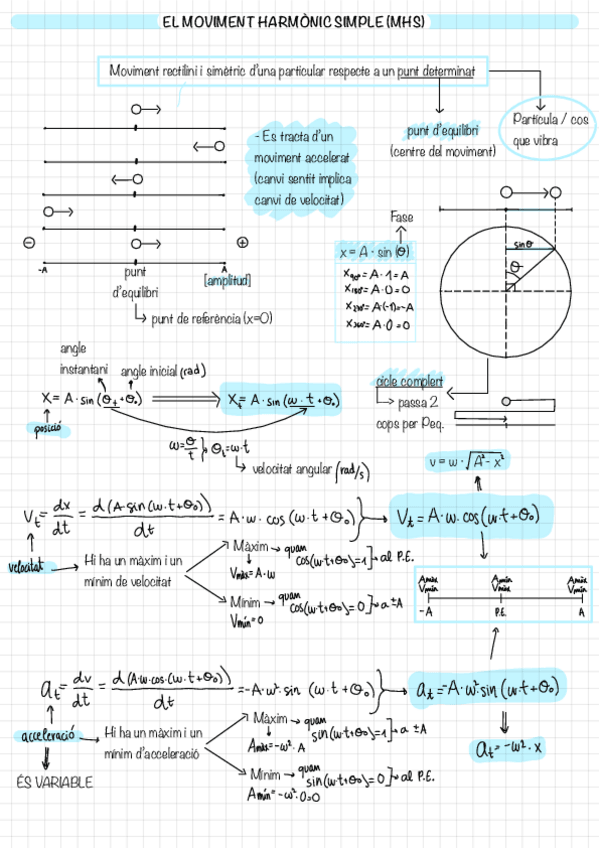 EL MOVIMENT HARMÒNIC SIMPLE (MHS)
Moviment rectilini i simètric d'una particular respecte a un punt determinat
- Es tracta d'un
moviment accelerat
(canvi sentit implica
canvi de velocitat)
punt d'equilibri
(centre del moviment)
Partícula / cos
que vibra
⊖ ⊕
-A A
punt
d'equilibri
[amplitud]
punt de referència (x=0)
Fase
x = A · sin (θ)
X90° = A · 1 = A
X180° = A · 0 = 0
X270° = A·(-1) = -A
X360° = A·0 = 0
sinθ
θ
cicle complert
passa 2
cops per Peq.
angle
instantani
angle inicial (rad)
X = A · sin (θt + θ₀)
Xt = A · sin (w · t + θ₀)
posició
w = θ/t } θt = w · t
velocitat angular (rad/s)
v = w · √A² - x²
Vt = dx/dt = d(A·sin(w·t+θ₀))/dt = A · w · cos (w · t + θ₀)
Vt = A · w · cos(w·t+θ₀)
velocitat
Hi ha un màxim i un
mínim de velocitat
Màxim → quan
cos(w·t+θ₀)=1] → al P.E.
Vmàx = A·w
Mínim → quan
cos(w·t+θ₀)=0] → a ±A
Vmín = 0
Amàx Amín Amàx
Vmín Vmàx Vmín
-A P.E. A
at = dv/dt = d(A·w·cos·(w·t+θ₀))/dt = -A·w²·sin (w·t+θ₀)
at = -A·w²sin(w·t+θ₀)
acceleració
Hi ha un màxim i un
mínim d'acceleració
ÉS VARIABLE
Màxim → quan
sin(w·t+θ₀)=1] → a ±A
Amàx = -w²·A
Mínim → quan
sin(w·t+θ₀)=0] → al P.E.
Amín = -w²·0=0
at = -w²·x